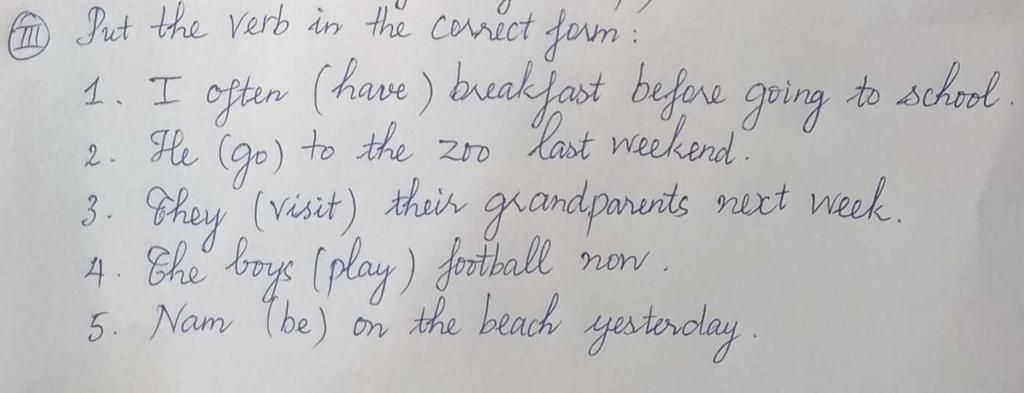 III Put the verb in the correct form :
1. I often (have) breakfast before going to school.
2. He (go) to the zoo last weekend.
3. They (visit) their grandparents next week.
4. The boys (play) football now.
5. Nam (be) on the beach yesterday.